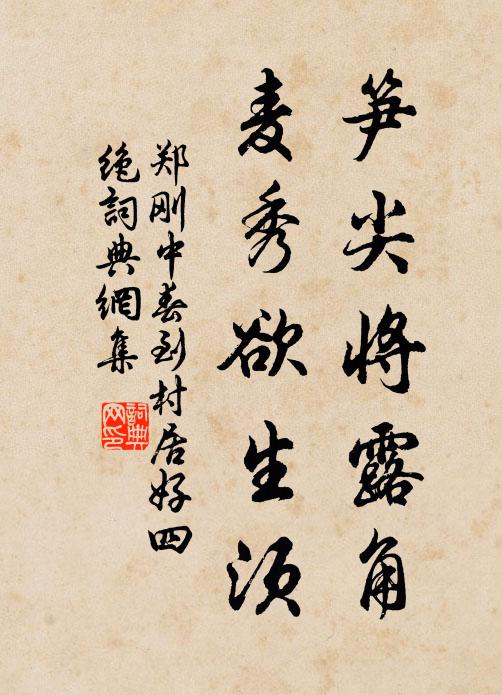 笋尖将露角
麦秀欲生须
郑刚中春到村居好四
绝詞典網集
詞典网印